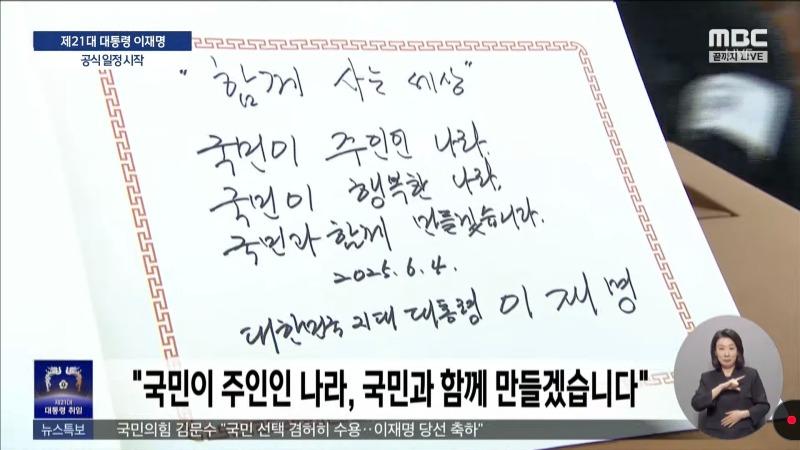 제21대 대통령 이재명
공식 일정 시작
MBC
끝까지 LIVE
"함께 사는 세상"
국민이 주인인 나라,
국민이 행복한 나라,
국민과 함께 만들겠습니다.
2025. 6. 4.
대한민국 21대 대통령 이재명
"국민이 주인인 나라, 국민과 함께 만들겠습니다"
제21대
대통령 취임
뉴스특보
국민의힘 김문수 "국민 선택 겸허히 수용‥이재명 당선 축하"